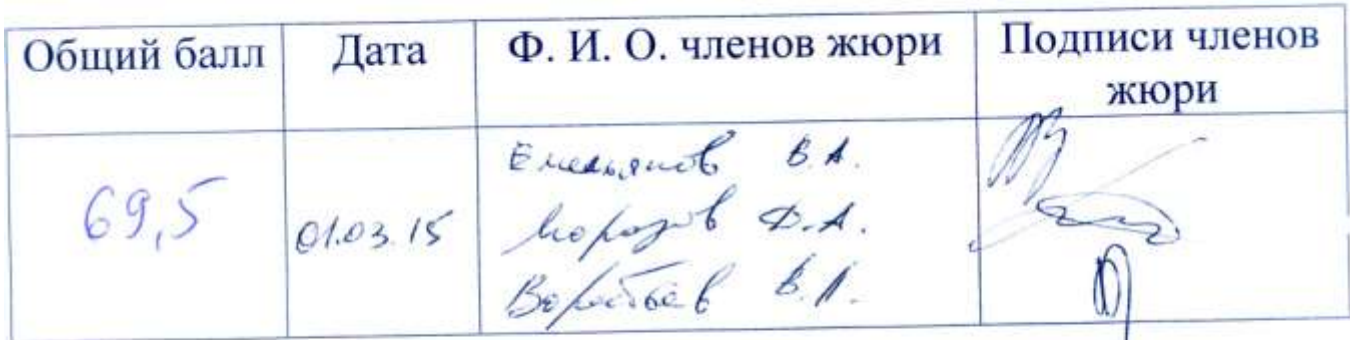 Общий балл Дата Ф. И. О. членов жюри Подписи членов
жюри
69,5 01.03.15 Емельянов В.А.
Морозов Д.А.
Воробьев В.А.